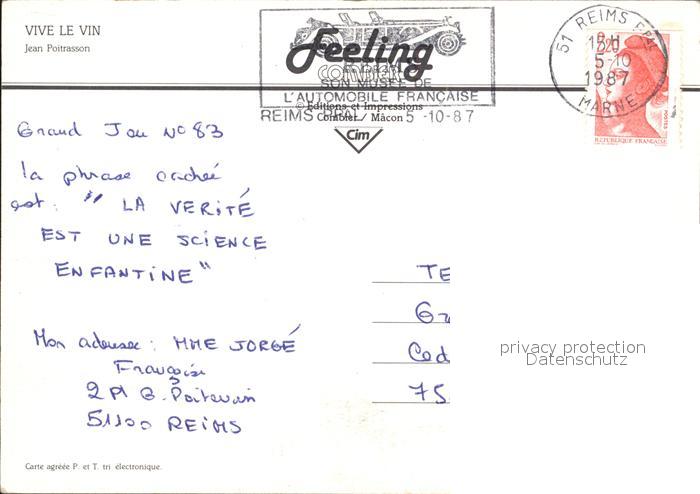 VIVE LE VIN
Jean Poitrasson
Feeling
SON MUSÉE DE
L'AUTOMOBILE FRANÇAISE
© Editions et Impressions
Combier Mâcon
REIMS 5 -10-87
Cim
51 REIMS
18H
5-10
1987
MARNE
2,20
POSTES
REPUBLIQUE FRANÇAISE
Grand Jeu N° 83
la phrase cachée
est : " LA VERITÉ
EST UNE SCIENCE
ENFANTINE "
Mon adresse : MME JORGÉ
Françoise
2 Pl G. Poitevin
51100 REIMS
TE
Gr
Ced
75
privacy protection
Datenschutz
Carte agréée P. et T. tri électronique.